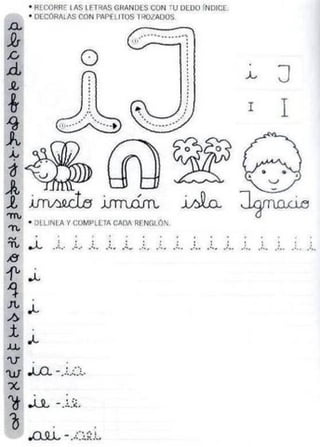 • RECORRE LAS LETRAS GRANDES CON TU DEDO ÍNDICE.
• DECÓRALAS CON PAPELITOS TROZADOS.
a
b
c
d
e
f
g
h
i
j
k
l
m
n
ñ
o
p
q
r
s
t
u
v
w
x
y
z
i I
i I
I I
insecto imán isla Ignacio
• DELINEA Y COMPLETA CADA RENGLÓN.
i i i i i i i i i i i i i i i i i
i
i
i
ia - ia
ie - ie
aei - aei